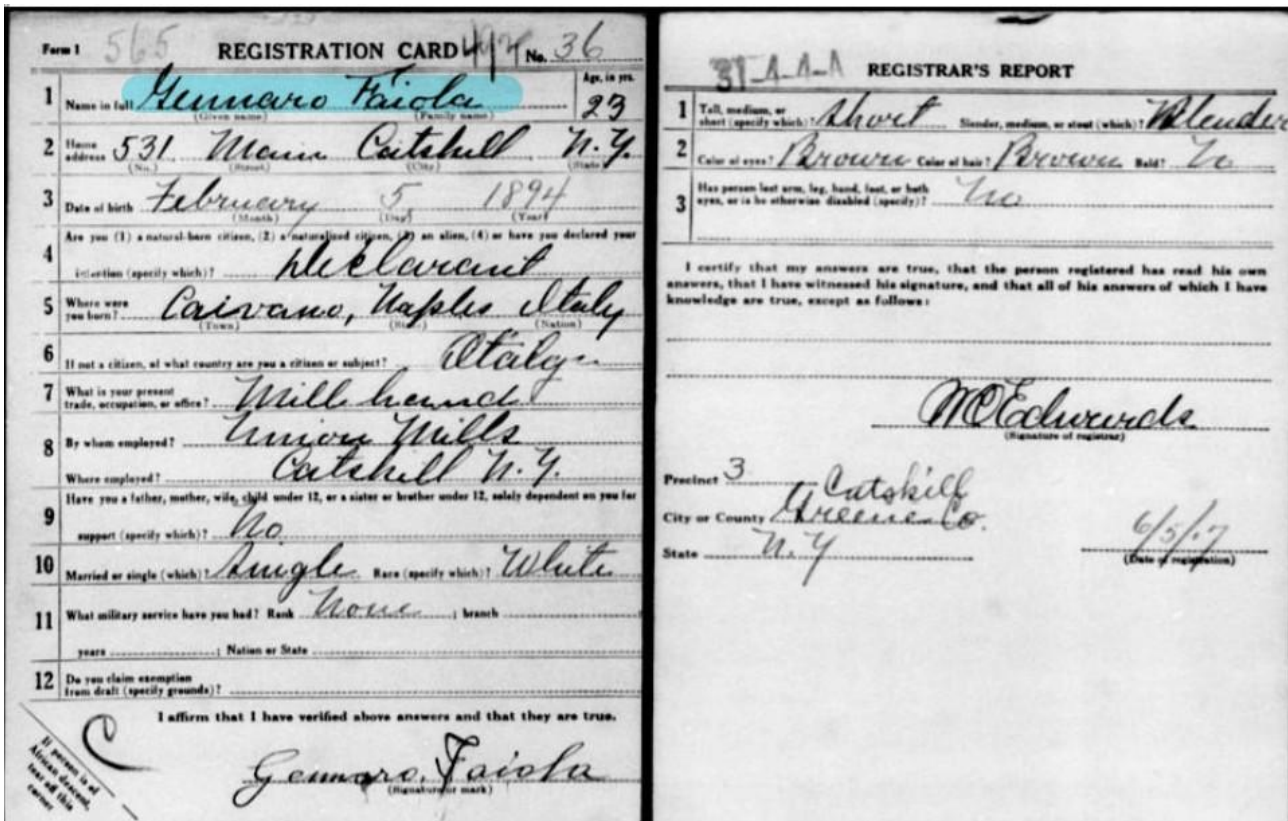 Form 1 565 REGISTRATION CARD No. 36
1 Name in full Gennaro Faiola Age, in yrs.
(Given name) (Family name) 23
2 Home address 531 Main Catskill N.Y.
(No.) (Street) (City) (State)
3 Date of birth February 5 1894
(Month) (Day) (Year)
4 Are you (1) a natural-born citizen, (2) a naturalized citizen, (3) an alien, (4) or have you declared your
intention (specify which)? Declarant
5 Where were you born? Caivano, Naples Italy
(Town) (State) (Nation)
6 If not a citizen, of what country are you a citizen or subject? Italy
7 What is your present trade, occupation, or office? Mill hand
8 By whom employed? Union Mills
Where employed? Catskill N.Y.
9 Have you a father, mother, wife, child under 12, or a sister or brother under 12, solely dependent on you for
support (specify which)? No
10 Married or single (which)? Single Race (specify which)? White
11 What military service have you had? Rank None ; branch ;
years ; Nation or State
12 Do you claim exemption from draft (specify grounds)?
I affirm that I have verified above answers and that they are true.
C
If person is of
African descent,
tear off this
corner
Gennaro Faiola
(Signature or mark)
31-4-4-A REGISTRAR'S REPORT
1 Tall, medium, or short (specify which)? Short Slender, medium, or stout (which)? Slender
2 Color of eyes? Brown Color of hair? Brown Bald? No
3 Has person lost arm, leg, hand, foot, or both
eyes, or is he otherwise disabled (specify)? No
I certify that my answers are true, that the person registered has read his own
answers, that I have witnessed his signature, and that all of his answers of which I have
knowledge are true, except as follows:
Edwards
(Signature of registrar)
Precinct 3
City or County Catskill Greene Co.
State N.Y
6/5/17
(Date of registration)